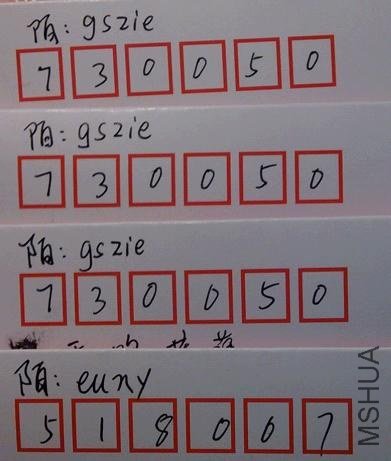 陌: gszie
730050
陌: gszie
730050
陌: gszie
730050
陌: euny
518007
MSHUA